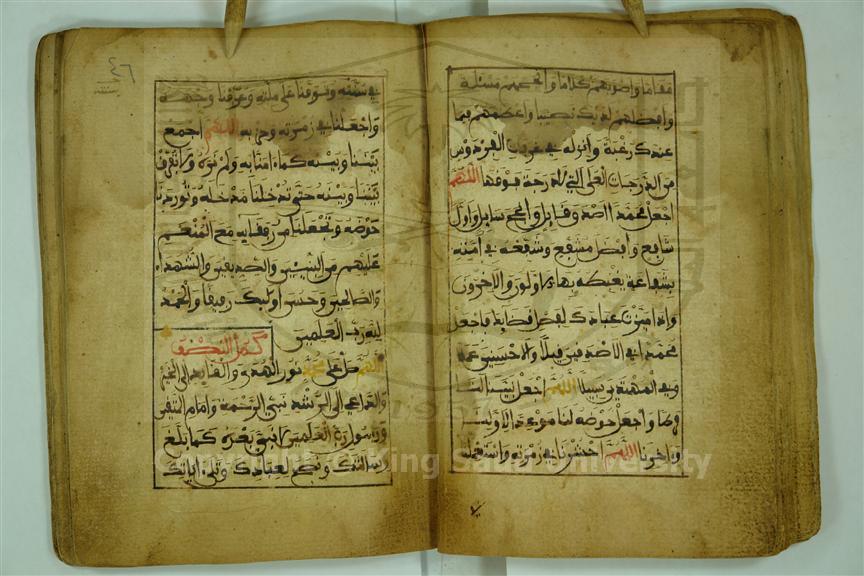 مقاما واصوبهم كلاما وانجحهم مسئلة
وافضلهم لديك نصيبا واعظمهم فيما
عندك رغبة وانزله في غرفات الفردوس
من الدرجات العلى التي لا درجة فوقها اللهم
اجعل محمدا اصدق قايل وانجح سايل واول
شافع وافضل مشفع وشفعه في امته
بشفاعة يغبطه بها الاولون والاخرون
واذا ميزت عبادك لفصل قضايك فاجعل
محمدا في الاصدقين قيلا والاحسنين عملا
وفي المهديين سبيلا اللهم اجعل نبينا لنا
فرطا واجعل حوضه لنا موعدا لاولنا
واخرنا اللهم احشرنا في زمرته واستعملنا
٤٦
في سنته وتوفنا على ملته وعرفنا وجهه
واجعلنا في زمرته وحزبه اللهم اجمع
بيننا وبينه كما ءامنا به ولم نره ولا تفرق
بيننا وبينه حتى تدخلنا مدخله وتوردنا
حوضه وتجعلنا من رفقايه مع المنعم
عليهم من النبيين والصديقين والشهداء
والصالحين وحسن اوليك رفيقا والحمد
لله رب العلمين
كمل النصف
اللهم صل على محمد نور الهدى والقايد الى الخير
والداعي الى الرشد نبي الرحمة وامام المتقين
ورسول رب العلمين لا نبي بعده كما بلغ
رسالتك ونصح لعبادك وتلى اياتك
Copyright © King Saud University